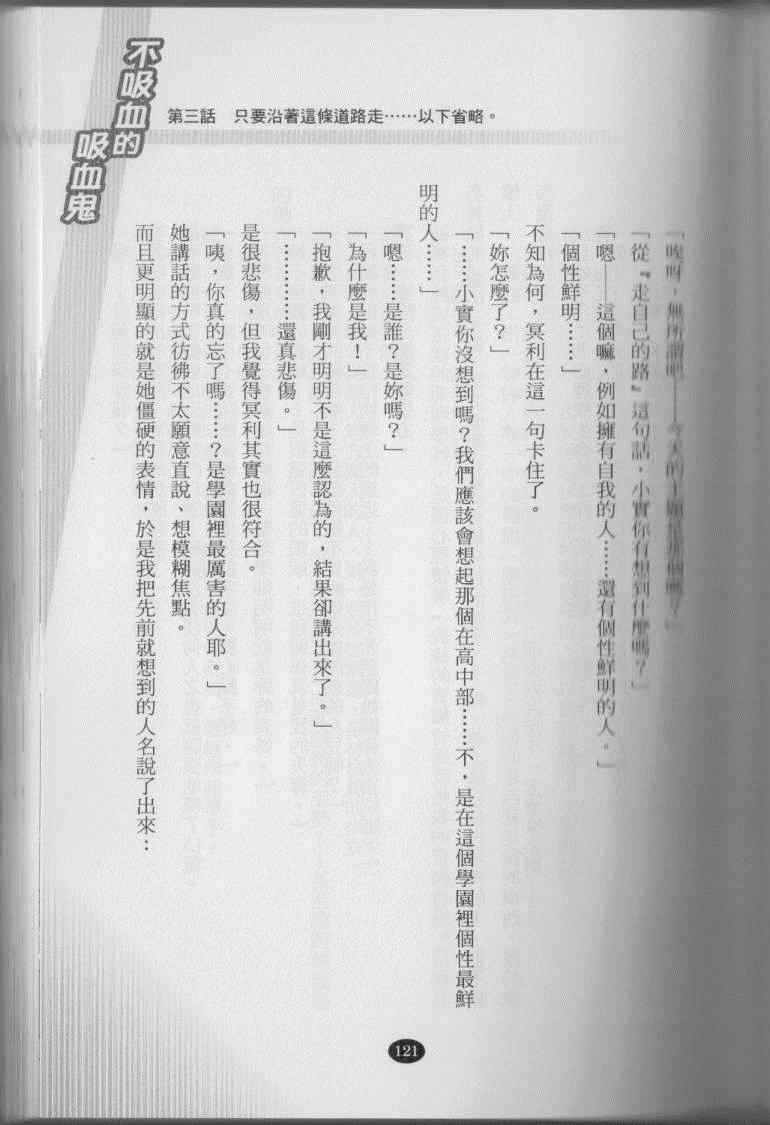 不吸血的
吸血鬼
第三話　只要沿著這條道路走……以下省略。
「唉呀，無所謂吧——今天的主題是那個嗎？」
「從『走自己的路』這句話，小實你有想到什麼嗎？」
「嗯——這個嘛，例如擁有自我的人……還有個性鮮明的人。」
「個性鮮明……」
不知為何，冥利在這一句卡住了。
「妳怎麼了？」
「……小實你沒想到嗎？我們應該會想起那個在高中部……不，是在這個學園裡個性最鮮
明的人……」
「嗯……是誰？是妳嗎？」
「為什麼是我！」
「抱歉，我剛才明明不是這麼認為的，結果卻講出來了。」
「…………還真悲傷。」
是很悲傷，但我覺得冥利其實也很符合。
「咦，你真的忘了嗎……？是學園裡最厲害的人耶。」
她講話的方式彷彿不太願意直說、想模糊焦點。
而且更明顯的就是她僵硬的表情，於是我把先前就想到的人名說了出來：
121